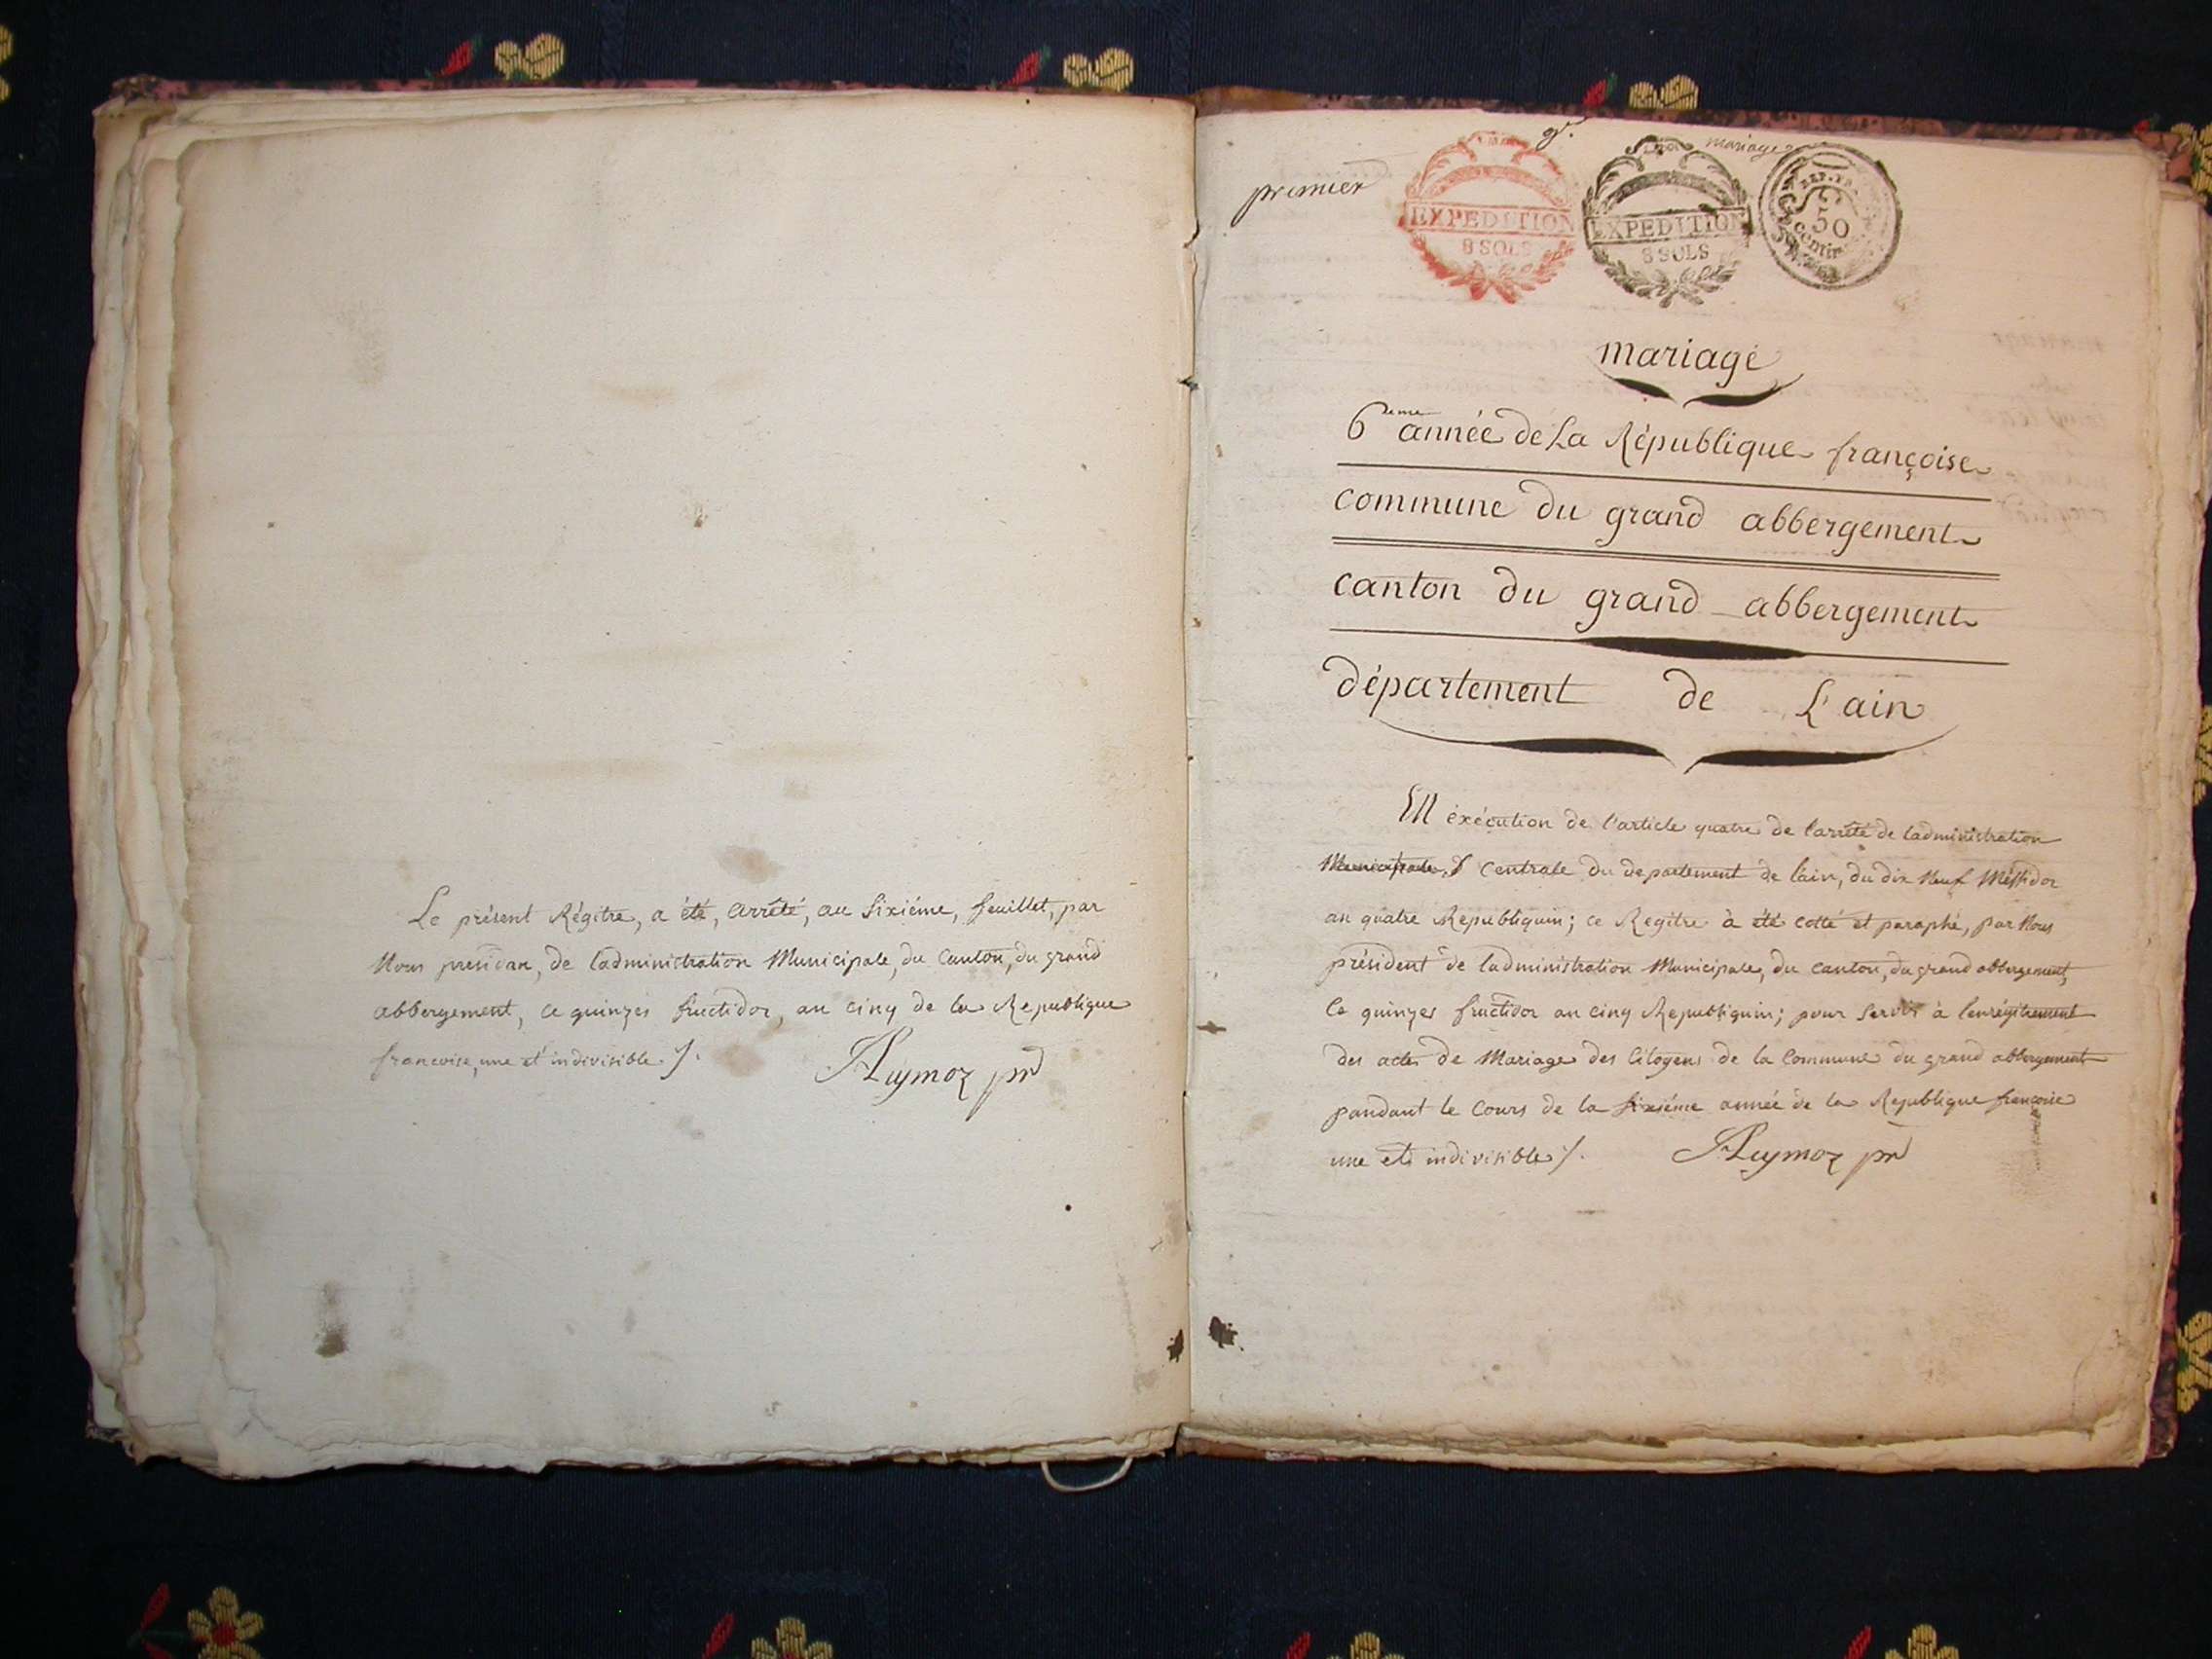 Le présent Régitre, a été, arrêté, au Sixiéme, feuillet, par
Nous presidan, de ladministration Municipale, du Canton, du grand
abbergement, ce quinzes fructidor, an cinq de la Republique
francoise, une et indivisible ./.
Aymoz pnt
premier
mariage
EXPEDITION
8 SOLS
EXPEDITION
8 SOLS
REP. FR.
50
centim
mariage
6eme année de La République françoise
commune du grand abbergement
canton du grand abbergement
département de L'ain
En éxécution de l'article quatre de l'arrêté de ladministration
Municipale, Centrale du departement de l'ain, du dix Neuf Méssidor
an quatre Republiquin; ce Regitre à été cotté et paraphé, par Nous
président de ladministration Municipale, du canton, du grand abbergement,
le quinzes fructidor an cinq Republiquin; pour servir à lenrégitrement
des actes de Mariage des Citoyens de la Commune du grand abbergement
pandant le cours de la Sixiéme année de la Republique françoise
une et indivisible ./.
Aymoz pnt